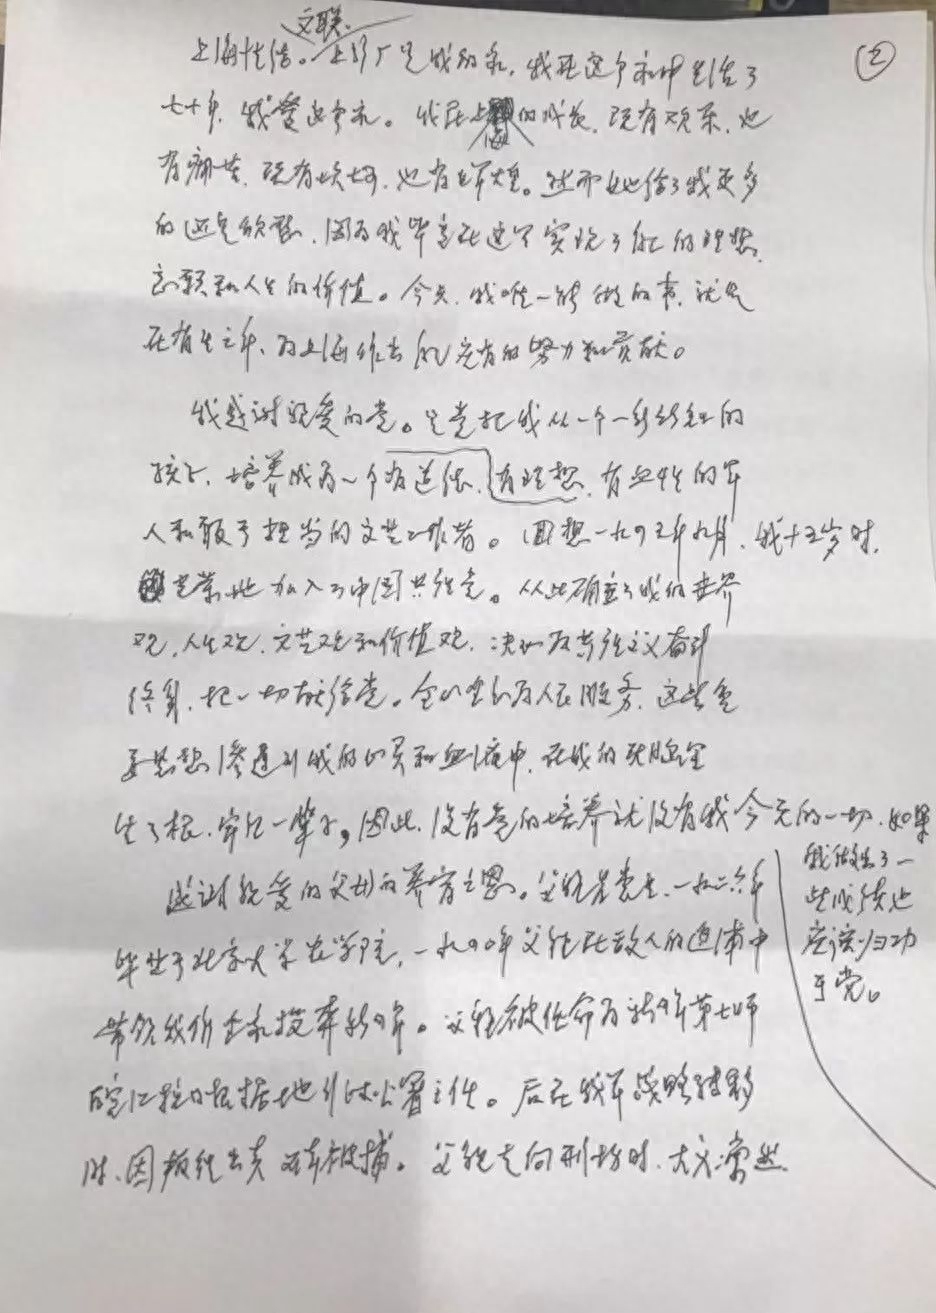 ②
文联
上海生活。上影厂是我的家，我在这个家中生活了
七十年，我爱这个家。我在上海的成长，既有欢乐，也
有痛苦，既有坎坷，也有辉煌。然而她给了我更多
的还是欣慰，因为我毕竟在这里实现了自己的理想、
志愿和人生的价值。今天，我唯一能做的事，就是
在有生之年，为上海作出自己应有的努力和贡献。
我感谢亲爱的党。是党把我从一个的
孩子，培养成为一个有道德、有理想、有血性的军
人和敢于担当的文艺工作者。回想一九四五年九月，我十五岁时，
光荣地加入了中国共产党。从此确立了我的世界
观、人生观、文艺观和价值观，决心为共产主义奋斗
终身，把一切献给党。全心全意为人民服务，这些重
要思想渗透到我的心灵和血液中，在我的头脑里
生了根，牢记一辈子。因此，没有党的培养就没有我今天的一切，如果
我做出了一
些成绩也
应该归功
于党。
感谢亲爱的父母的养育之恩。父亲是党员，一九二六年
毕业于北京大学农学院，一九四〇年父亲在敌人的追捕中
带领我们全家投奔新四军。父亲被任命为新四军第七师
皖江抗日根据地行政公署主任。后在我军战略转移
时，因叛徒出卖不幸被捕。父亲走向刑场时，大义凛然